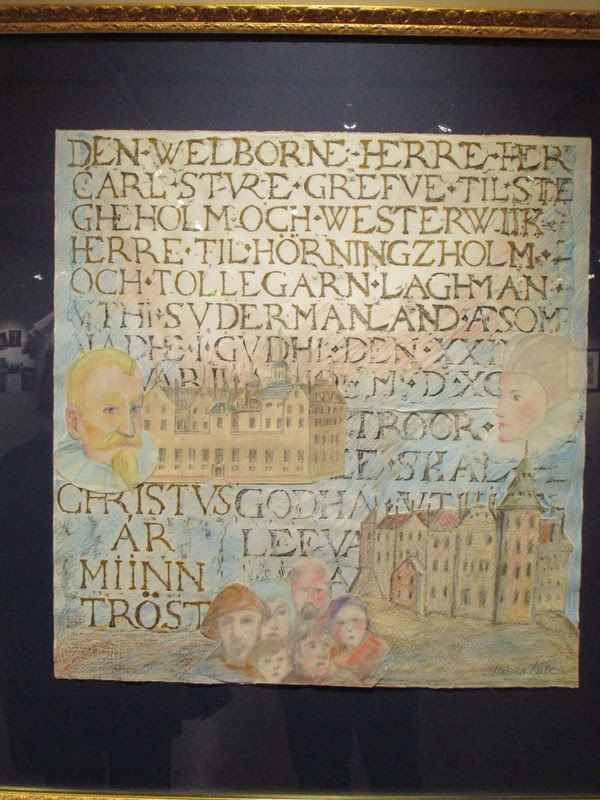 DEN·WELBORNE·HERRE·HER
CARL·STVRE·GREFVE·TIL·STE
GHEHOLM·OCH·WESTERWIIK·
HERRE·TIL·HÖRNINGZHOLM·
OCH·TOLLEGARN·LAGHMAN·
VTHI·SVDERMANLAND·ÆSOM
I·GVDHI·DEN·XX
M·D·XC
TROOR·
SKAL
CHRISTVS GODH
ÄR LEFVA
MIINN
TRÖST